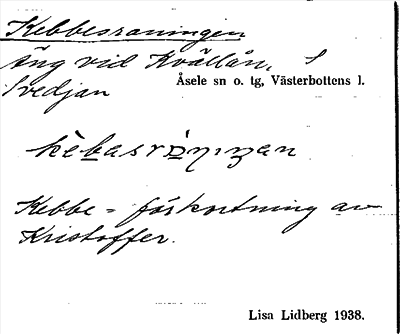 Kebbesraningen
Äng vid Kvällån, S
Svedjan
Åsele sn o. tg, Västerbottens l.
Kebbe = förkortning av
Kristoffer.
Lisa Lidberg 1938.